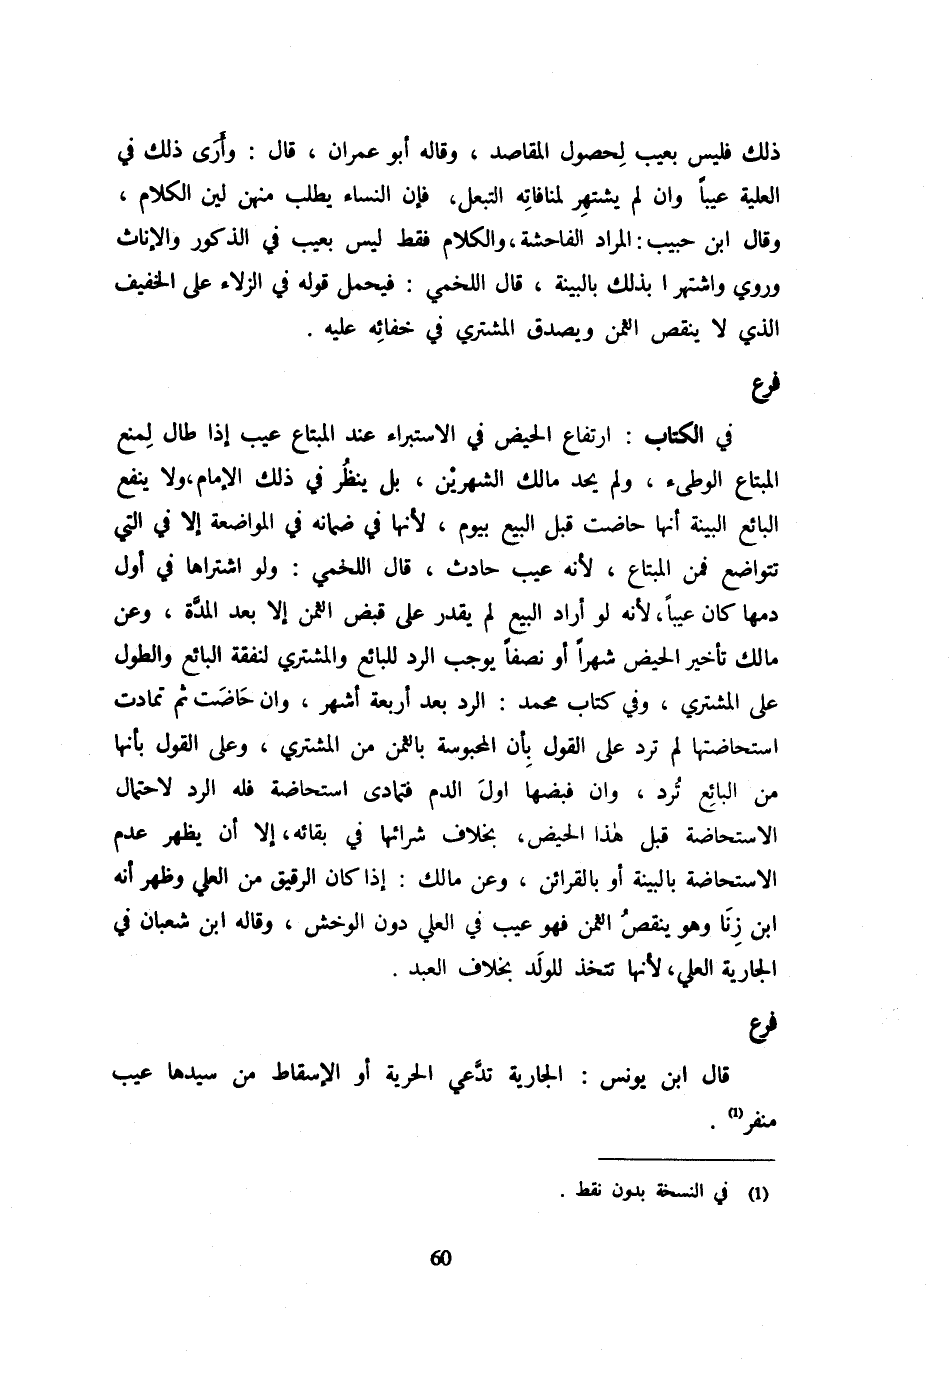 ذلك فليس بعيب لِحصول المقاصد ، وقاله أبو عمران ، قال : وأَرَى ذلك في
العلية عيباً وان لم يشتهِر لمنافاتِه التبعل، فإن النساء يطلب منهن لين الكلام ،
وقال ابن حبيب : المراد الفاحشة ، والكلام فقط ليس بعيب في الذكور والإناث
وروي واشتهر ا بذلك بالبينة ، قال اللخمي : فيحمل قوله في الزلاء على الخفيف
الذي لا ينقص الثمن ويصدق المشتري في خفائِه عليه .
فرع
في الكتاب : ارتفاع الحيض في الاستبراء عند المبتاع عيب إذا طال لِمنع
المبتاع الوطىء ، ولم يحد مالك الشهريْن ، بل ينظُر في ذلك الإمام ،ولا ينفع
البائع البينة أنها حاضت قبل البيع بيوم ، لأنها في ضمانه في المواضعة إلا في التي
تتواضع فمن المبتاع ، لأنه عيب حادث ، قال اللخمي : ولو اشتراها في أول
دمها كان عيباً، لأنه لو أراد البيع لم يقدر على قبض الثمن إلا بعد المدَّة ، وعن
مالك تأخير الحيض شهراً أو نصفاً يوجب الرد للبائع والمشتري لنفقة البائع والطول
على المشتري ، وفي كتاب محمد : الرد بعد أربعة أشهر ، وان حَاضَت ثم تمادت
استحاضتها لم ترد على القول بِأن المحبوسة بالثمن من المشتري ، وعلى القول بأنها
من البائِع تُرد ، وان قبضها اولَ الدم فتمادى استحاضة فله الرد لاحتمال
الاستحاضة قبل هٰذا الحيض، بخلاف شرائها في بقائه، إلا أن يظهر عدم
الاستحاضة بالبينة أو بالقرائن ، وعن مالك : إذا كان الرقيق من العلي وظهر أنه
ابن زِنَا وهو ينقصُ الثمن فهو عيب في العلي دون الوخش ، وقاله ابن شعبان في
الجارية العلي، لأنها تتخذ للولَد بخلاف العبد .
فرع
قال ابن يونس : الجارية تدَّعي الحرية أو الإسقاط من سيدها عيب
منفر(1) .
(1) في النسخة بدون نقط .
60